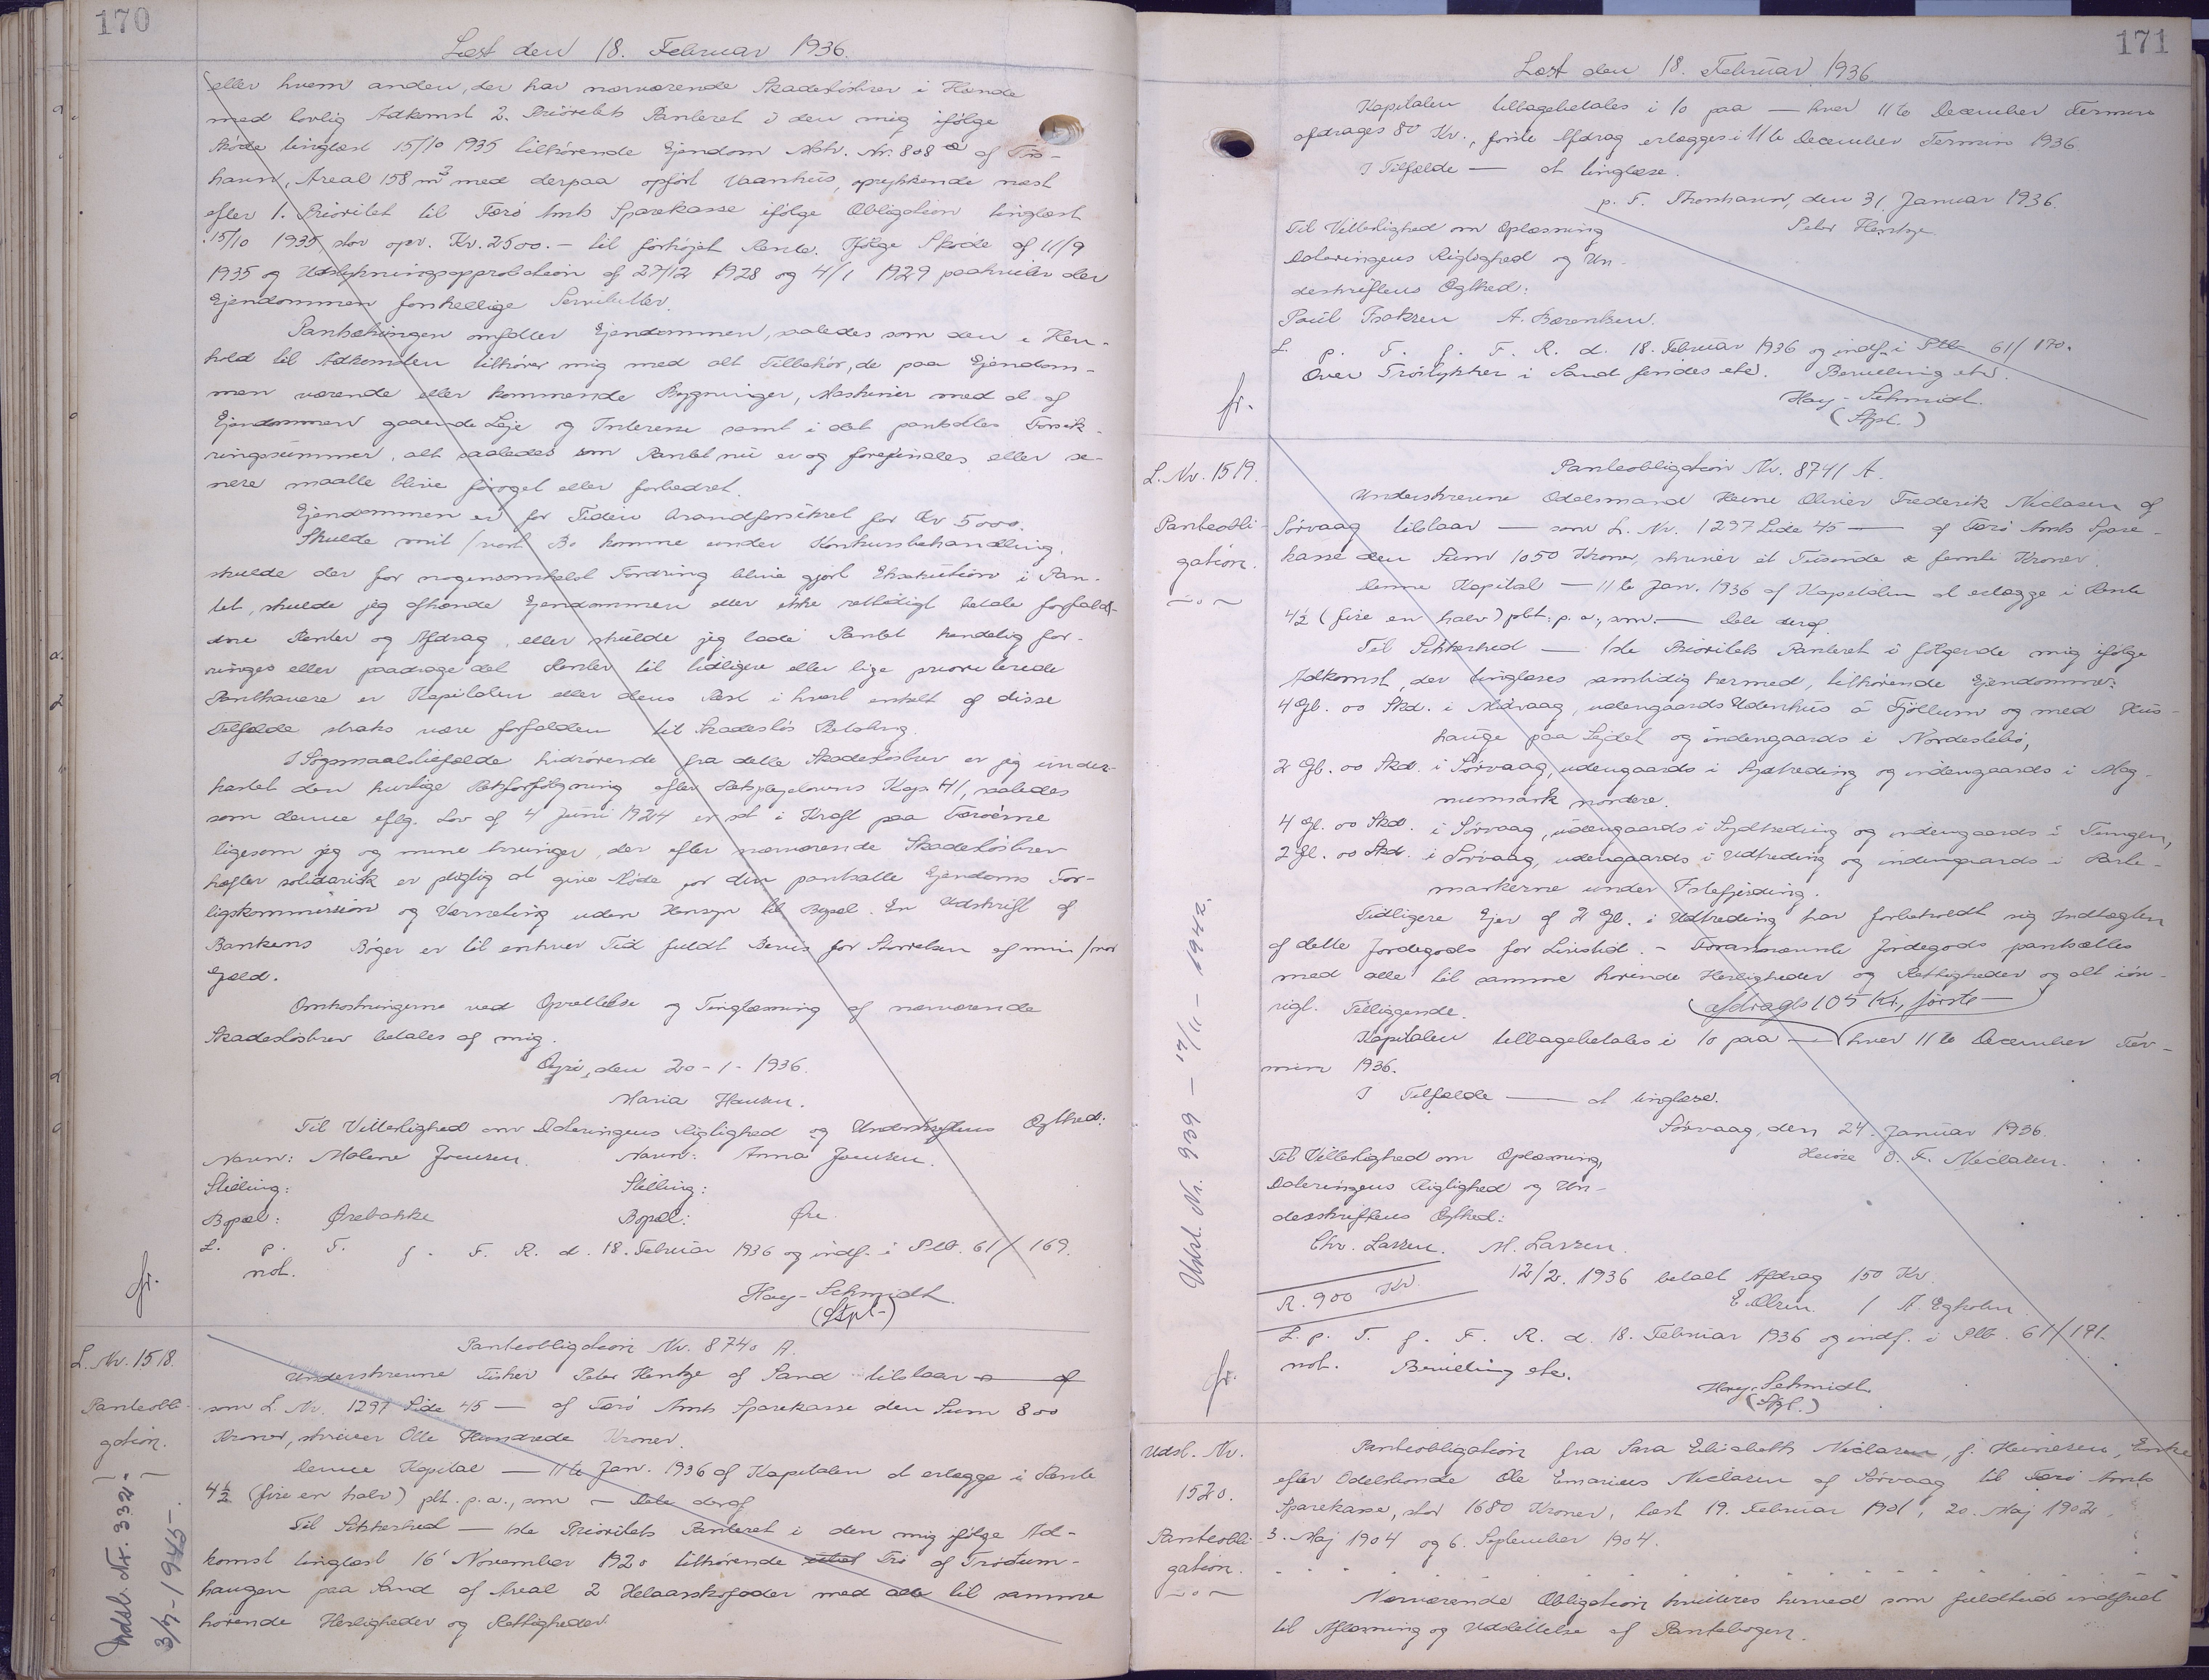 170
Læst den 18. Februar 1936.
eller hvem anden, der har nærværende Skadesløsbrev i Hænde
med lovlig Adkomst 2. Prioritets Panteret i den mig ifølge
Skøde tinglæst 15/10 1935 tilhørende Ejendom Matr. Nr. 808 a af Tórs-
havn, Areal 158 m² med derpaa opført Vaanhus, oprykkende næst
efter 1. Prioritet til Færø Amts Sparekasse ifølge Obligation tinglæst
15/10 1935, stor opr. Kr. 2500.- til forhøjet Rente. Ifølge Skøde af 11/9
1935 og Udstykningsapprobation af 27/12 1928 og 4/1 1929 paahviler der
Ejendommen forskellige Servitutter.
Pantsætningen omfatter Ejendommen, saaledes som den i Hen-
hold til Adkomsten tilhører mig med alt Tilbehør, de paa Ejendom-
men værende eller kommende Bygninger, Maskiner med al af
Ejendommen gaaende Leje og Interesse samt i det pantsattes Forsik-
ringssummer, alt saaledes som Pantet nu er og forefindes eller se-
nere maatte blive forøget eller forbedret.
Ejendommen er for Tiden brandforsikret for Kr 5000.
Skulde mit/vort Bo komme under Konkursbehandling,
skulde der for nogensomhelst Fordring blive gjort Eksekution i Pan-
tet, skulde jeg afhænde Ejendommen eller ikke rettidigt betale forfald-
ne Renter og Afdrag, eller skulde jeg lade Pantet kendelig for-
ringes eller paadrage det Renter til tidligere eller lige prioriterede
Panthavere er Kapitalen eller dens Rest i hvert enkelt af disse
Tilfælde straks være forfalden til skadesløs Betaling.
I Søgsmaalstilfælde hidrørende fra dette Skadesløsbrev er jeg under-
kastet den hurtige Retsforfølgning efter Retsplejelovens Kap 41, saaledes
som denne eflg. Lov af 4 Juni 1924 er sat i Kraft paa Færøerne
ligesom jeg og mine Arvinger, der efter nærværende Skadesløsbrev
hæfter solidarisk er pligtig at give Møde for den pantsatte Ejendoms For-
ligskommission og Værneting uden Hensyn til Bopæl. En Udskrift af
Bankens Bøger er til enhver Tid fuldt Bevis for Størrelsen af min/vor
Gæld.
Omkostningerne ved Oprettelse og Tinglæsning af nærværende
Skadesløsbrev betales af mig.
Øjri, den 20-1-1936.
Maria Hansen.
Til Vitterlighed om Dateringens Rigtighed og Underskriftens Ægthed:
Navn: Malene Joensen. Navn: Anna Joensen.
Stilling: Stilling:
Bopæl: Ørebakke Bopæl: Øre
L. p. T. f. F. R. d. 18. Februar 1936 og indf. i Ptb. 61/169.
not.
Hay-Schmidt
(Stpl.)
fr.
L. Nr. 1518.
Panteobli-
gation.
Udsl. Nr. 332
3/7-1945-
Panteobligation Nr. 8740 A.
Underskrevne Fisker Peter Hentze af Sand tilstaar — af
som L. Nr. 1297 Side 45 — af Færø Amts Sparekasse den Sum 800
Kroner, skriver Otte Hundrede Kroner.
Denne Kapital — 11te Jan. 1936 af Kapitalen at erlægge i Rente
4½ (fire en halv) pCt. p.a., som — Dele deraf
Til Sikkerhed — 1ste Prioritets Panteret i den mig ifølge Ad-
komst tinglæst 16' November 1920 tilhørende Trø af Trødum-
haugen paa Sand af Areal 2 Helaarskofoder med alle til samme
hørende Herligheder og Rettigheder.
171
Læst den 18. Februar 1936
Kapitalen tilbagebetales i 10 paa — hver 11te December Termin
afdrages 80 Kr., første Afdrag erlægges i 11te December Termin 1936.
I Tilfælde — at tinglæse.
p. T. Thorshavn, den 31. Januar 1936.
Til Vitterlighed om Oplæsning Peter Hentze
Dateringens Rigtighed og Un-
derskriftens Ægthed:
Poul Isaksen A. Bærentsen.
L. p. T. f. F. R. d. 18. Februar 1936 og indf. i Ptb 61/170.
Over Tróstykker i Sand findes etc. Bevilling etc.
Hay-Schmidt.
(Stpl.)
fr.
L. Nr. 1519.
Panteobli-
gation.
Udsl. Nr. 939 — 17/11 - 1942.
Panteobligation Nr. 8741 A.
Underskrevne Odelsmand Heine Olivier Frederik Niclasen af
Sørvaag tilstaar — som L. Nr. 1297 Side 45 — af Færø Amts Spare-
kasse den Sum 1050 Kroner, skriver et Tusinde & femti Kroner.
Denne Kapital — 11te Jan. 1936 af Kapitalen at erlægge i Rente
4½ (fire en halv) pCt. p. a., som — Dele deraf.
Til Sikkerhed — 1ste Prioritets Panteret i følgende mig ifølge
Adkomst, der tinglæses samtidig hermed, tilhørende Ejendomme:
4 Gl. 00 Skd. i Midvaag, udengaards Udenhus á Fjøllum og med Hus-
hauge paa Lejdet og indengaards i Nordestebø,
2 Gl. 00 Skd. i Sørvaag, udengaards i Sydtreding og indengaards i Mag-
nusmark nordere.
4 Gl. 00 Skd. i Sørvaag, udengaards i Sydtreding og indengaards i Tungen,
2 Gl. 00 Skd. i Sørvaag, udengaards i Udtreding og indengaards i Parte-
markerne under Fstefjording.
Tidligere Ejer af 2 Gl. i Udtreding har forbeholdt sig Indtægten
af dette Jordegods for Livstid. - Forannævnte Jordegods pantsættes
med alle til samme hørende Herligheder og Rettigheder og alt iøv-
rigt Tilliggende. (afdrages 105 Kr., første —
Kapitalen tilbagebetales i 10 paa — hver 11te December Ter-
min 1936.
I Tilfælde — at tinglæse.
Sørvaag, den 24. Januar 1936.
Til Vitterlighed om Oplæsning, Heine O. F. Niclasen.
Dateringens Rigtighed og Un-
derskriftens Ægthed:
Chr. Larsen. M. Larsen.
12/2. 1936 betalt Afdrag 150 Kr.
R. 900 Kr. E. Olsen / A. Egholm
L. p. T. f. F. R. d. 18. Februar 1936 og indf. i Ptb. 61/171.
not. Bevilling etc.
Hay-Schmidt
(Stpl.)
fr.
Udsl. Nr.
1520.
Panteobli-
gation.
Panteobligation fra Sara Elisabeth Niclasen, f. Heinesen, Enke
efter Odelsbonde Ole Emarius Niclasen af Sørvaag til Færø Amts
Sparekasse, stor 1680 Kroner, læst 19. Februar 1901, 20. Maj 1902,
3. Maj 1904 og 6. September 1904.
Nærværende Obligation kvitteres herved som fuldtud indfriet
til Aflæsning og Udslettelse af Pantebogen.